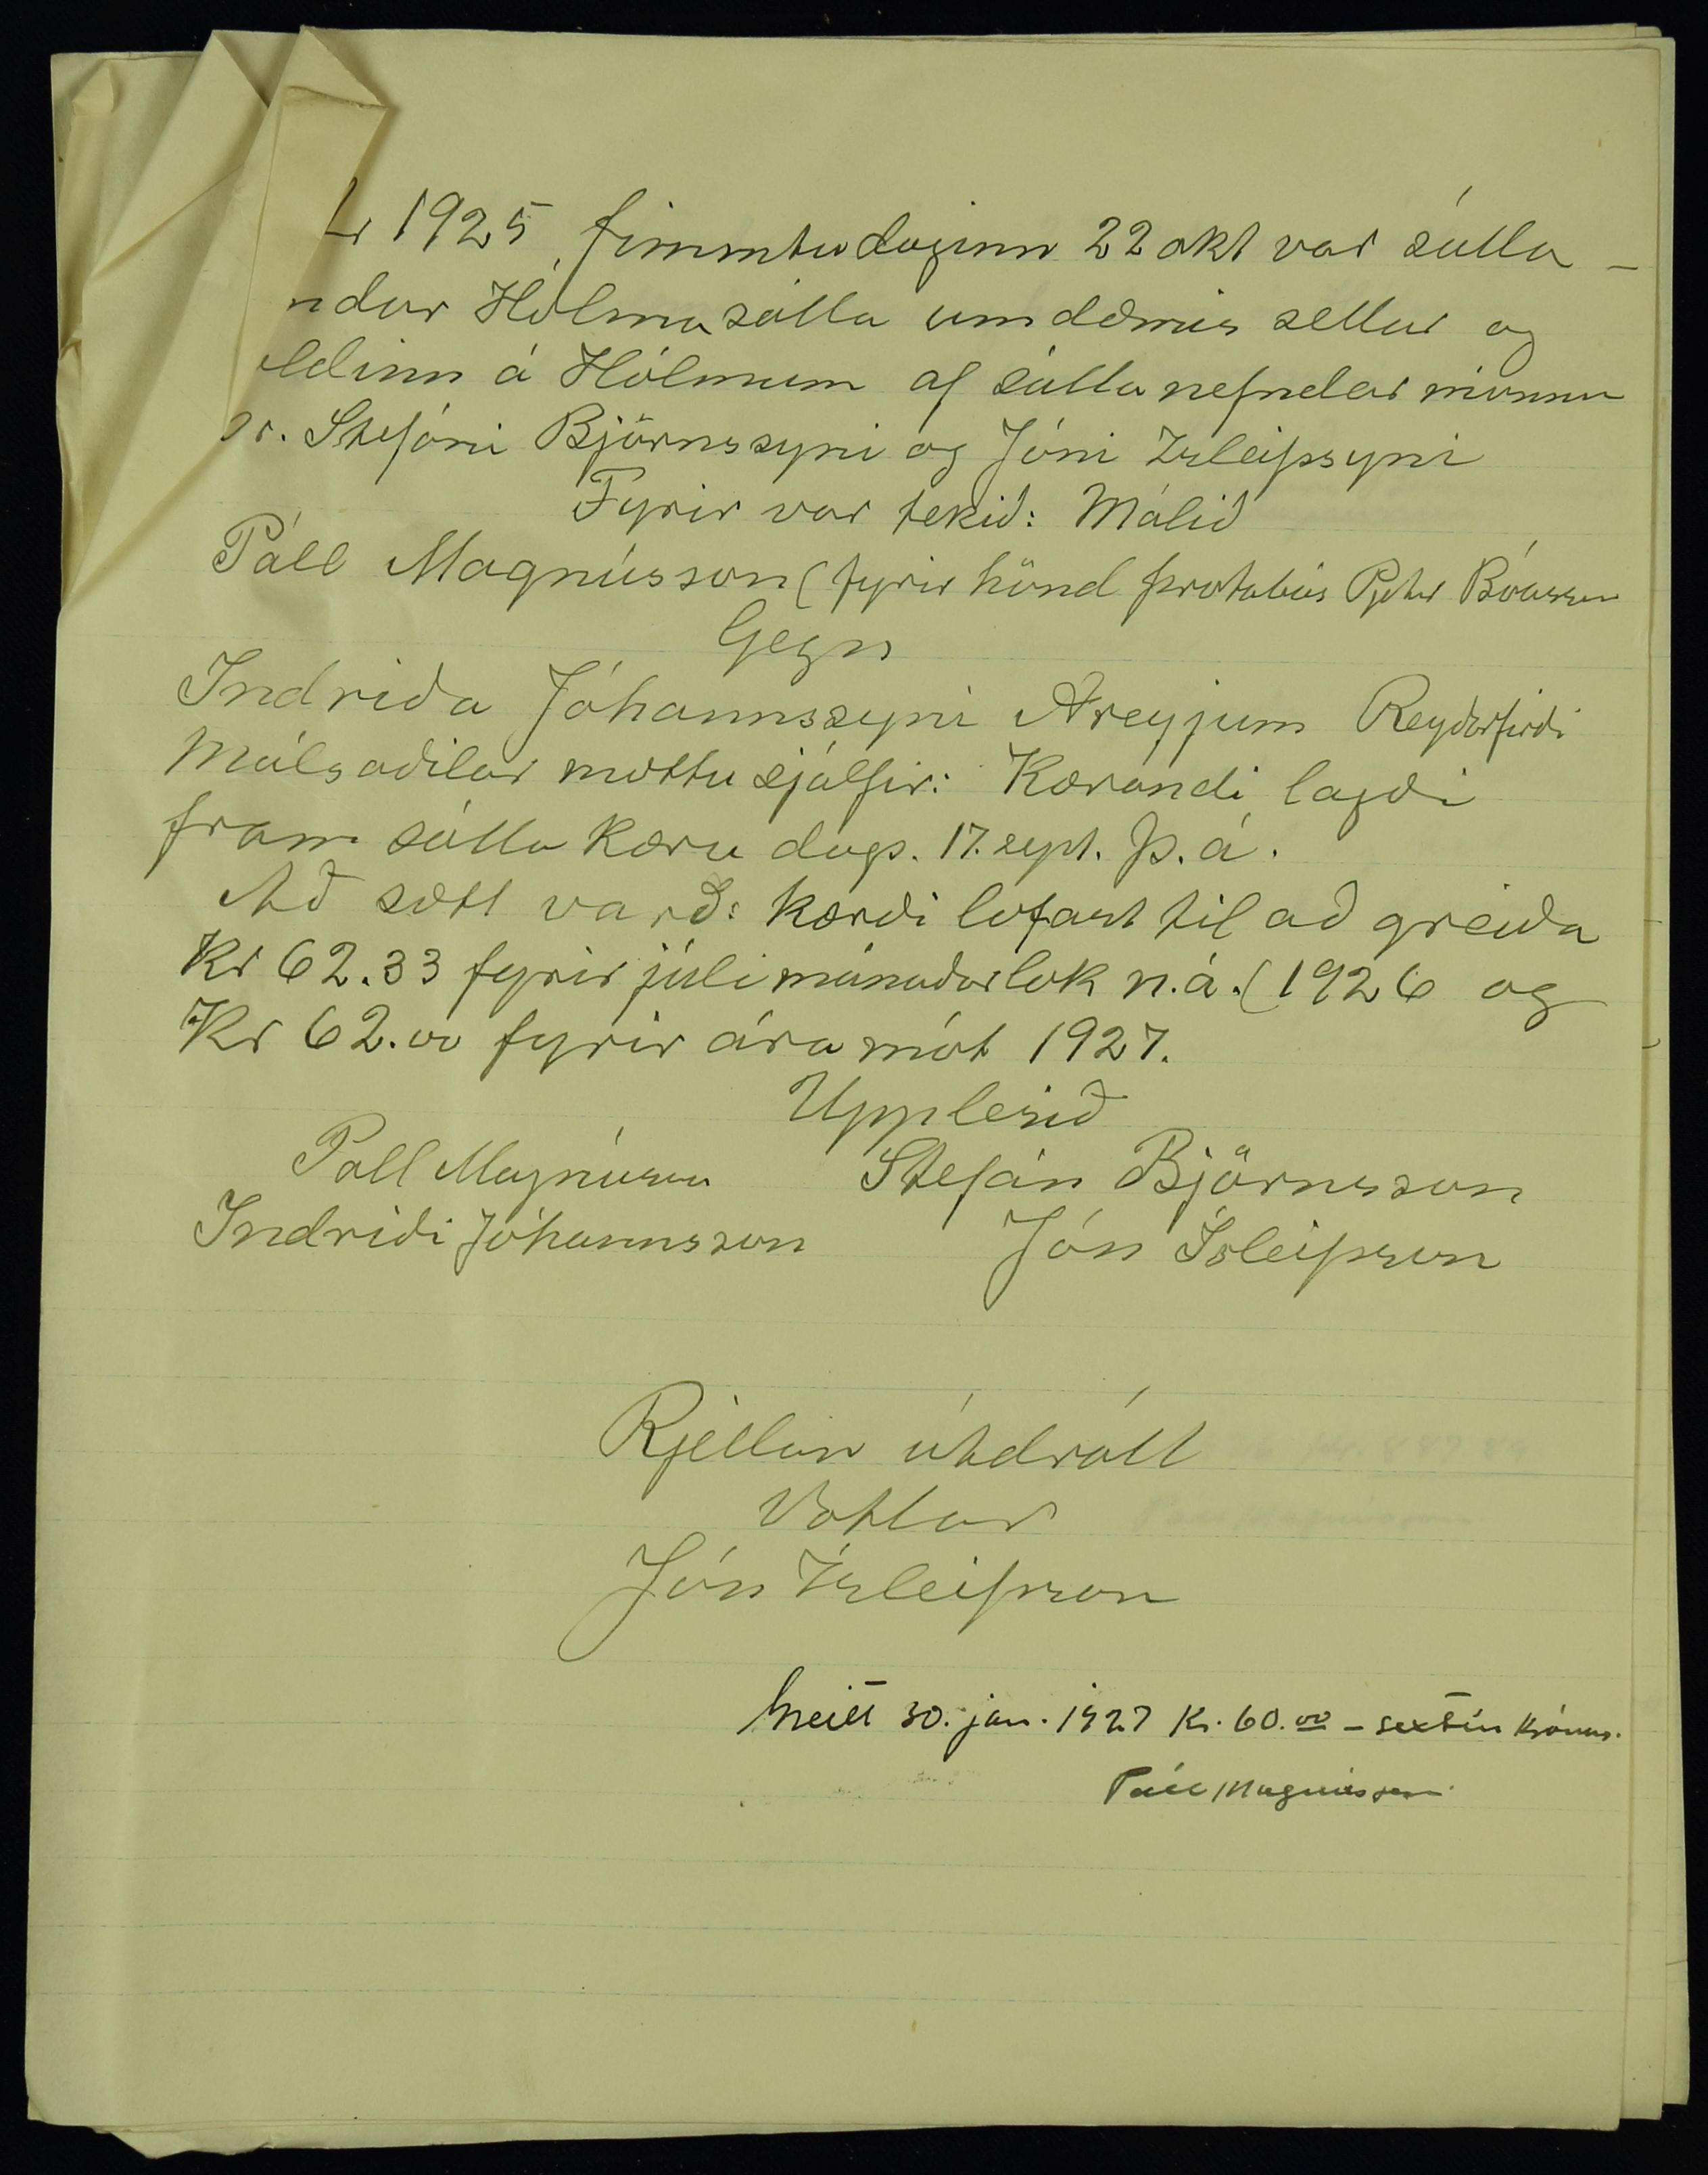 1925, fimmtudaginn 22 okt var sátta-
ndur Hólmasátta umdæmis settur og
ldinn á Hólmum af sáttanefndar mönnum
sr. Stefáni Björnssyni og Jóni Ísleifssyni
Fyrir var tekið: Málið
Páll Magnússon (fyrir hönd þrotabús Pjeturs Bóassonar
Gegn
Indriða Jóhannssyni Áreyjum Reyðarfirði
Málsaðilar mættu sjálfir: Kærandi lagði
fram sátta kæru dags. 17. sept. þ. á.
Að sætt varð: kærði lofast til að greiða
Kr 62.33 fyrir júlimánaðarlok n.á. (1926 og
Kr 62.00 fyrir ára mót 1927.
Upplesið
Páll Magnússon Stefán Björnsson
Indriði Jóhannsson Jón Ísleifsson
Rjettan útdrátt
Vottar
Jón Ísleifsson
Greitt 30. jan. 1927 Kr. 60.00 - sextíu krónur.
Páll Magnússon